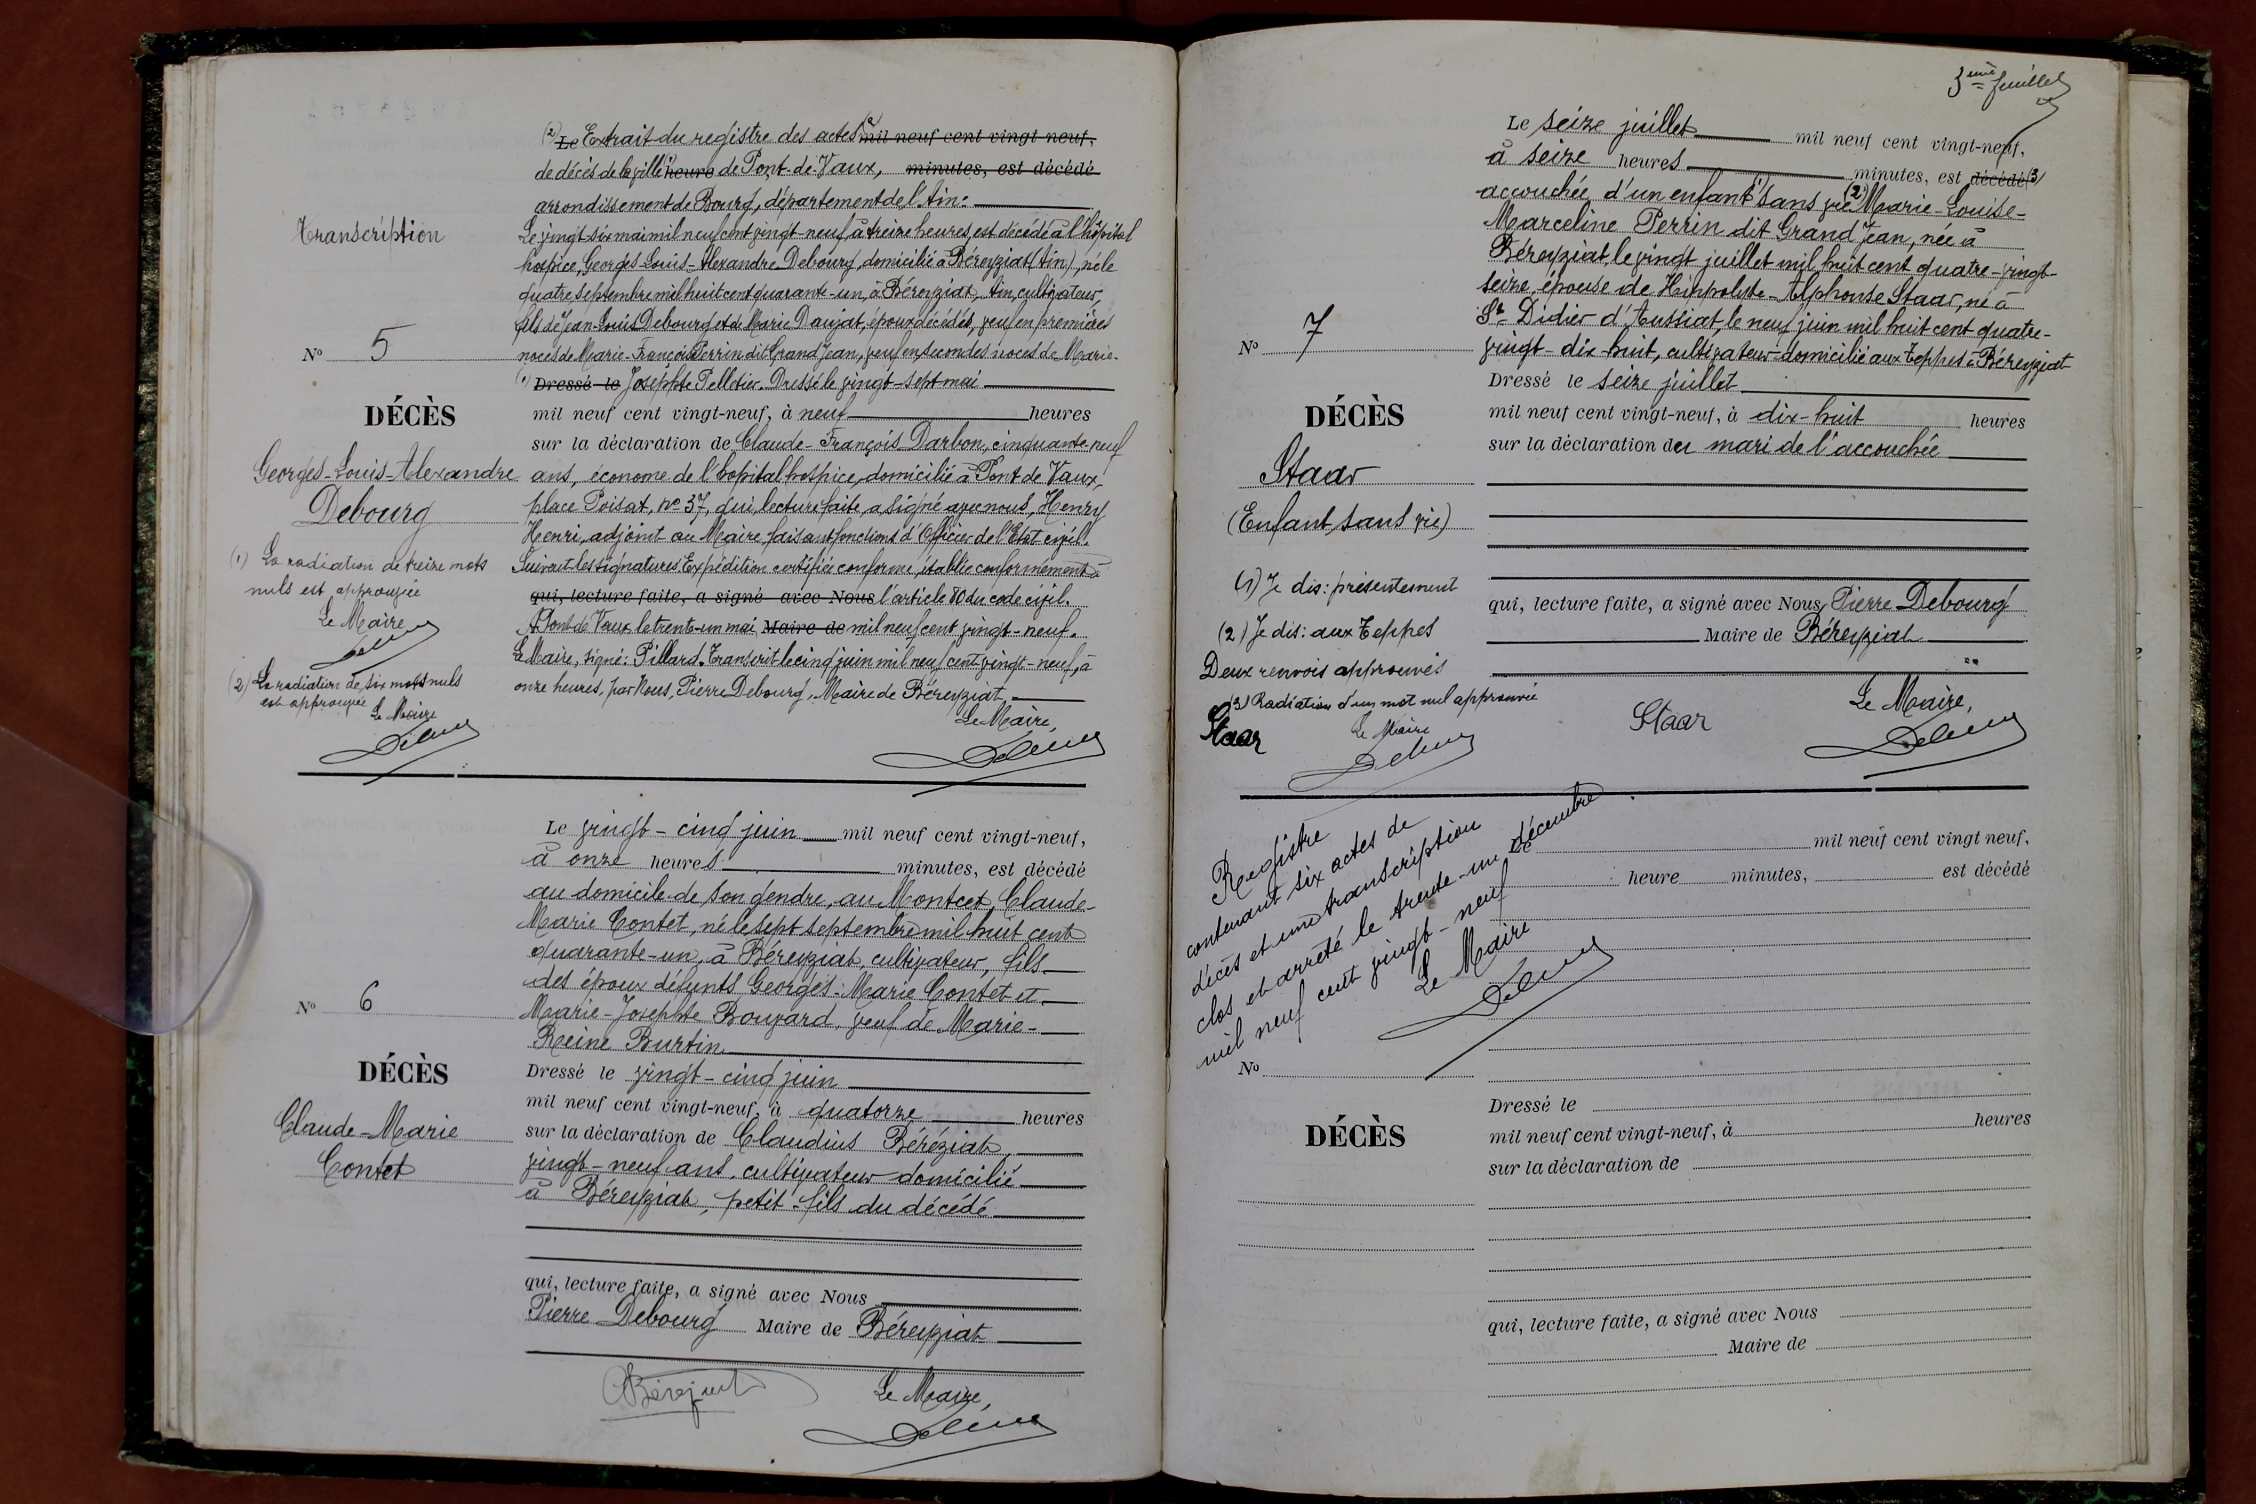 Transcription
(2) Le Extrait du registre des actes mil neuf cent vingt neuf,
de décès de la ville heure de Pont-de-Vaux, minutes, est décédé
arrondissement de Bourg, département de l'Ain:
Le vingt-six mai mil neuf cent vingt-neuf à treize heures, est décédé à l'hôpital
hospice, Georges-Louis-Alexandre Debourg, domicilié à Béreyziat (Ain), né le
quatre septembre mil huit cent quarante-un, à Béreyziat, Ain, cultivateur,
fils de Jean-Louis Debourg et de Marie Daujat, époux décédés, veuf en premières
noces de Marie-François Perrin dit Grand Jean, veuf en secondes noces de Marie-
(1) Dressé le Josephte Pelletier. Dressé le vingt-sept mai
mil neuf cent vingt-neuf, à neuf heures
sur la déclaration de Claude-François Darbon, cinquante-neuf
ans, économe de l'hopital hospice, domicilié à Pont de Vaux,
place Poisat, no 37, qui, lecture faite, a signé avec nous, Henry
Henri, adjoint au Maire faisant fonctions d'Officier de l'Etat civil.
Suivent les signatures. Expédition certifiée conforme, établie conformément à
qui, lecture faite, a signé avec Nous l'article 80 du code civil.
A Pont de Vaux le trente-un mai Maire de mil neuf cent vingt-neuf.
Le Maire, signé: Pillard. Transcrit le cinq juin mil neuf cent vingt-neuf, à
onze heures, par Nous, Pierre Debourg, Maire de Béreyziat
Le Maire,
No 5
DÉCÈS
Georges-Louis-Alexandre
Debourg
(1) La radiation de treize mots
nuls est approuvée
Le Maire
(2) La radiation de six mots nuls
est approuvée
Le Maire
Le vingt-cinq juin mil neuf cent vingt-neuf,
à onze heures minutes, est décédé
au domicile de son gendre, au Montcet, Claude-
Marie Contet, né le sept septembre mil huit cent
quarante-un, à Béreyziat, cultivateur, fils
des époux défunts Georges-Marie Contet et
Marie-Josephte Bouvard, veuf de Marie-
Reine Burtin
Dressé le vingt-cinq juin
mil neuf cent vingt-neuf, à quatorze heures
sur la déclaration de Claudius Béréziat,
vingt-neuf ans, cultivateur domicilié
à Béreyziat, petit-fils du décédé
qui, lecture faite, a signé avec Nous
Pierre Debourg Maire de Béreyziat
Le Maire,
No 6
DÉCÈS
Claude-Marie
Contet
3ème feuillet
Le seize juillet mil neuf cent vingt-neuf,
à seize heures minutes, est décédé (3)
accouchée d'un enfant (1) sans vie (2) Marie-Louise-
Marceline Perrin dit Grand Jean, née à
Béreyziat, le vingt juillet mil huit cent quatre-vingt-
seize, épouse de Hippolyte-Alphonse Staar, né à
St Didier d'Aussiat, le neuf juin mil huit cent quatre-
vingt-dix-huit, cultivateur domicilié aux Teppes à Béreyziat
Dressé le seize juillet
mil neuf cent vingt-neuf, à dix-huit heures
sur la déclaration du mari de l'accouchée
qui, lecture faite, a signé avec Nous, Pierre Debourg
Maire de Béreyziat
Le Maire,
Staar
No 7
DÉCÈS
Staar
(Enfant sans vie)
(1) Je dis: présentement
(2) Je dis: aux Teppes
Deux renvois approuvés
(3) Radiation d'un mot nul approuvée
Staar
Le Maire
Registre
contenant six actes de
décès et une transcription
clos et arrêté le trente-un décembre
mil neuf cent vingt-neuf
Le Maire
Le mil neuf cent vingt neuf,
heure minutes, est décédé
No
DÉCÈS
Dressé le
mil neuf cent vingt-neuf, à heures
sur la déclaration de
qui, lecture faite, a signé avec Nous
Maire de